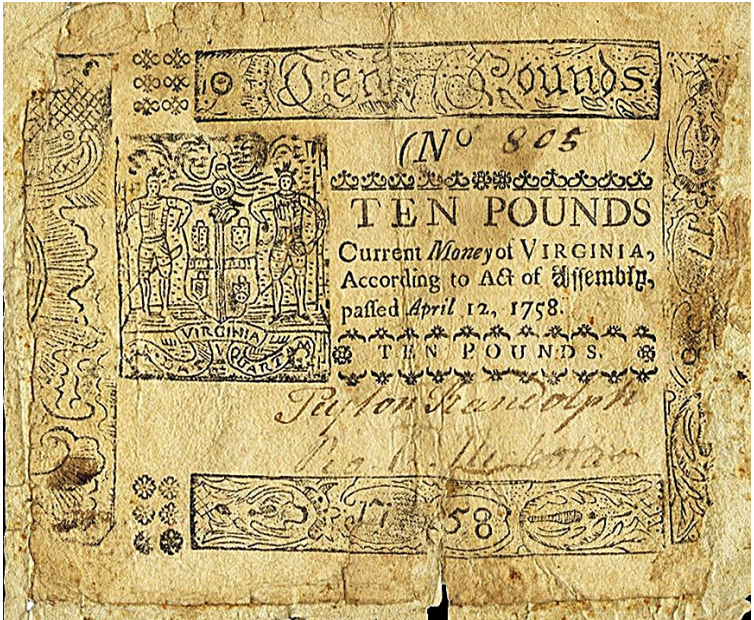 Ten Pounds
(No 805 )
TEN POUNDS
Current Money of VIRGINIA,
According to Act of Assembly,
paſſed April 12, 1758.
VIRGINIA
TEN POUNDS.
Peyton Randolph
17 58